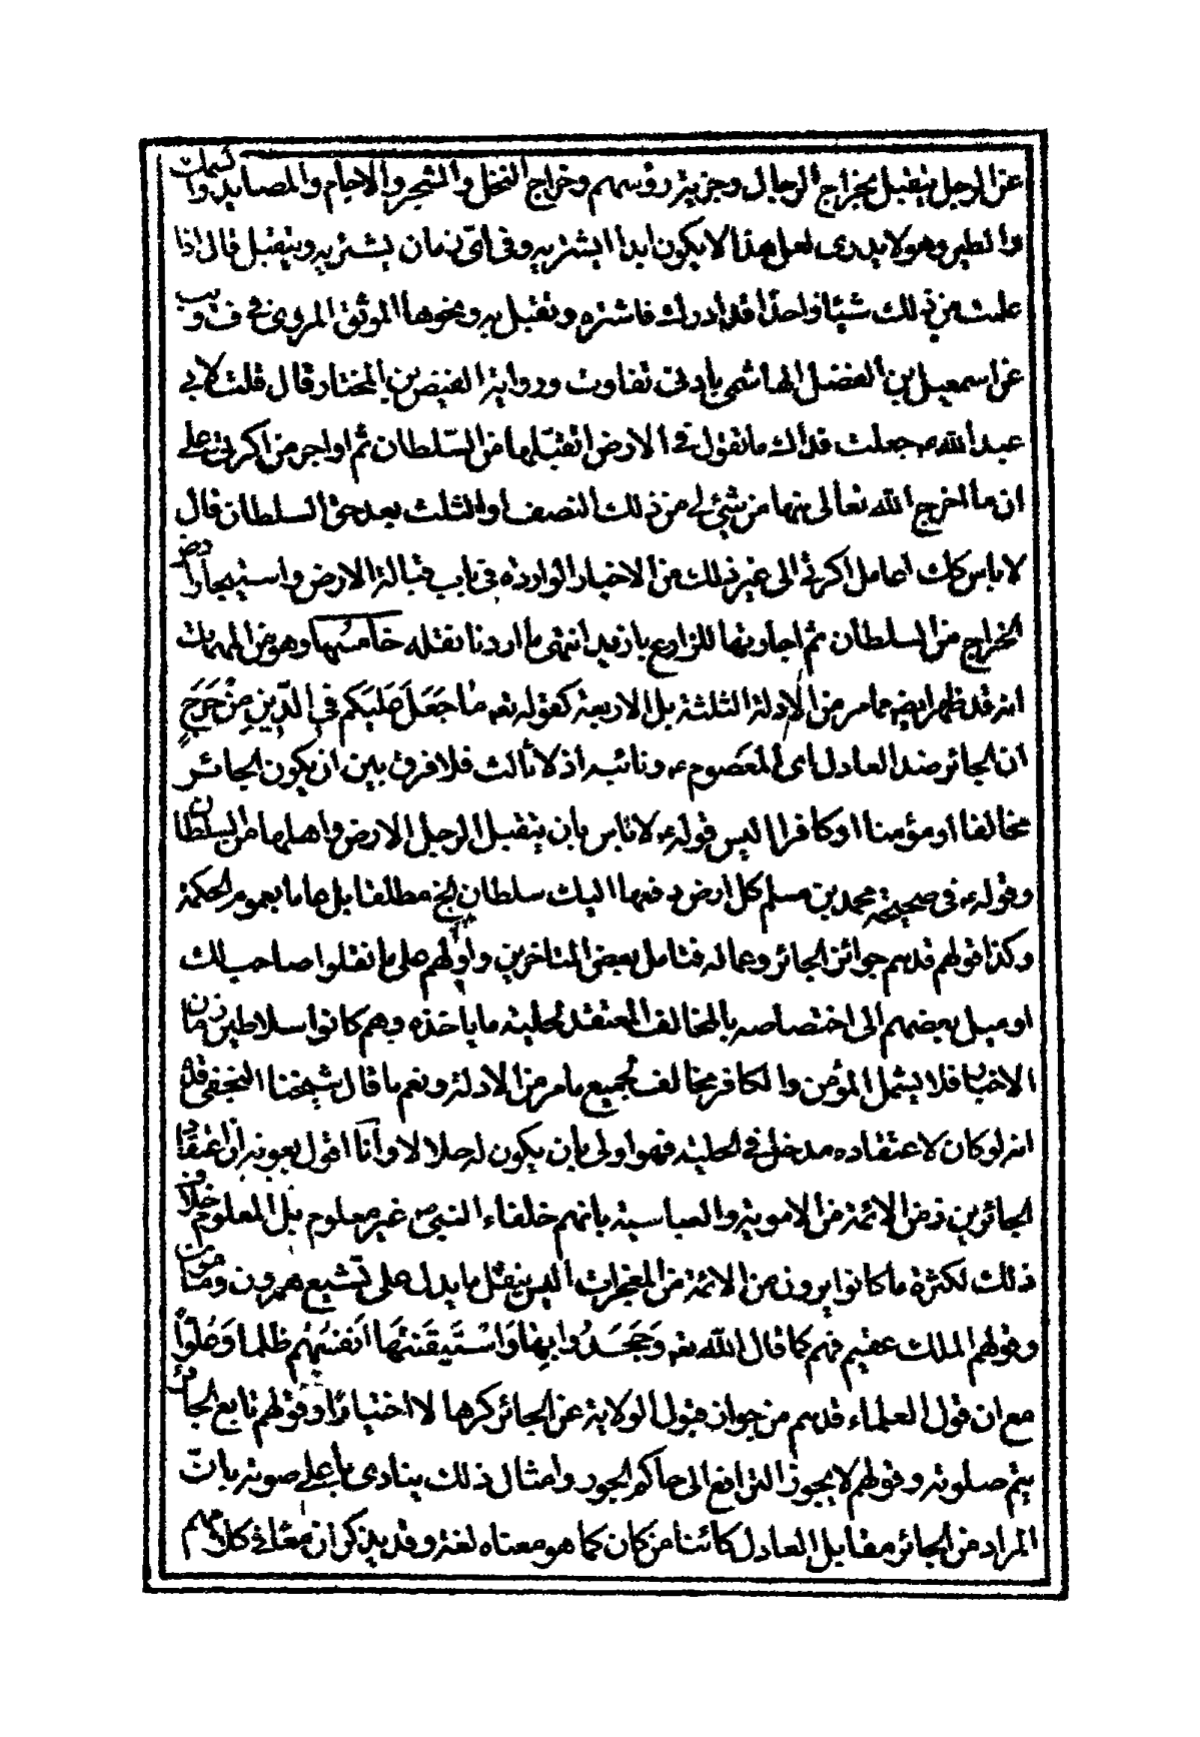 عن الرجل يتقبل بخراج الرجال وجزية رؤسهم وخراج النخل والشجر والاجام والمصايد والسمك
والطير وهو لا يدرى لعل هذا لا يكون ابدا ايشتريه وفى اىّ زمان يشتريه ويتقبل قال اذا
علمت من ذلك شيئا واحدًا قد ادرك فاشتره وتقبل به ونحوها الموثق المروى فى
عن اسمعيل بن الفضل الهاشمى بادنى تفاوت ورواية الفيض بن المختار قال قلت لابى
عبد الله ع جعلت فداك ما تقول فى الارض اتقبّلها من السّلطان ثم اواجر من اكرتى على
ان ما اخرج الله تعالى منها من شئ لى من ذلك النصف او الثلث بعد حق السلطان قال
لا باس كك اعامل اكرتى الى غير ذلك من الاخبار الوارده فى باب قبالة الارض واستيجار ارض
الخراج من السلطان ثم اجارتها للزارع بازيد انتهى ما اردنا نقله خامسها وهو من المهمات
انه قد ظهر ايضا مما مر من الادلة الثلثة بل الاربعة كقوله تعه مٰا جَعَلَ عَلَيكم فِى الدّينِ مِنْ حَرَجٍ
ان الجائر ضد العادل اى المعصوم ع ونائبه اذ لا ثالث فلا فرق بين ان يكون الجائر
مخالفا او مؤمنا او كافرا اليس قوله ع لا باس بان يتقبل الرجل الارض واهلها من السلطان
وقوله ع فى صحيحة محمد بن مسلم كل ارض دفعها اليك سلطان الخ مطلقا بل عاما بعموم الحكمة
وكذا قولهم قدهم جوائز الجائر وعماله فتامل بعض المتاخرين واولهم على ما نقلوا صاحب لك
او ميل بعضهم الى اختصاصه بالمخالف المعتقد لحلية ما ياخذه وهم كانوا سلاطين زمان
الاخبار فلا يشمل المؤمن والكافر مخالف لجميع ما مر من الادلة ونعم ما قال شيخنا النجفى قده
انه لو كان لاعتقاده مدخل فى الحلية فهو اولى بان يكون له حلالا وانا اقول بعونه ان اعتقاد
الجائرين زمن الائمة من الاموية والعباسية بانهم خلفاء النبى ص غير معلوم بل المعلوم خلافه
ذلك لكثرة ما كانوا يرون من الائمة من المعجزات اليس ينقل ما يدل على تشيع هرون ومامون
وقولهم الملك عقيم فهم كما قال الله تعه وَجَحَدُوا بِهٰا وَاسْتَيقَنَتهَا اَنفُسُهُم ظلما وَعُلوّاً
مع ان قول العلماء قدهم من جواز قبول الولاية عن الجائر كرها لا اختيارًا وقولهم تابع الجائر
يتم صلوته وقولهم لا يجوز الترافع الى حاكم الجور وامثال ذلك ينادى باعلى صوته بانّ
المراد من الجائر مقابل العادل كائنا من كان كما هو معناه لغة وقد يذكر ان معه فى كلامهم